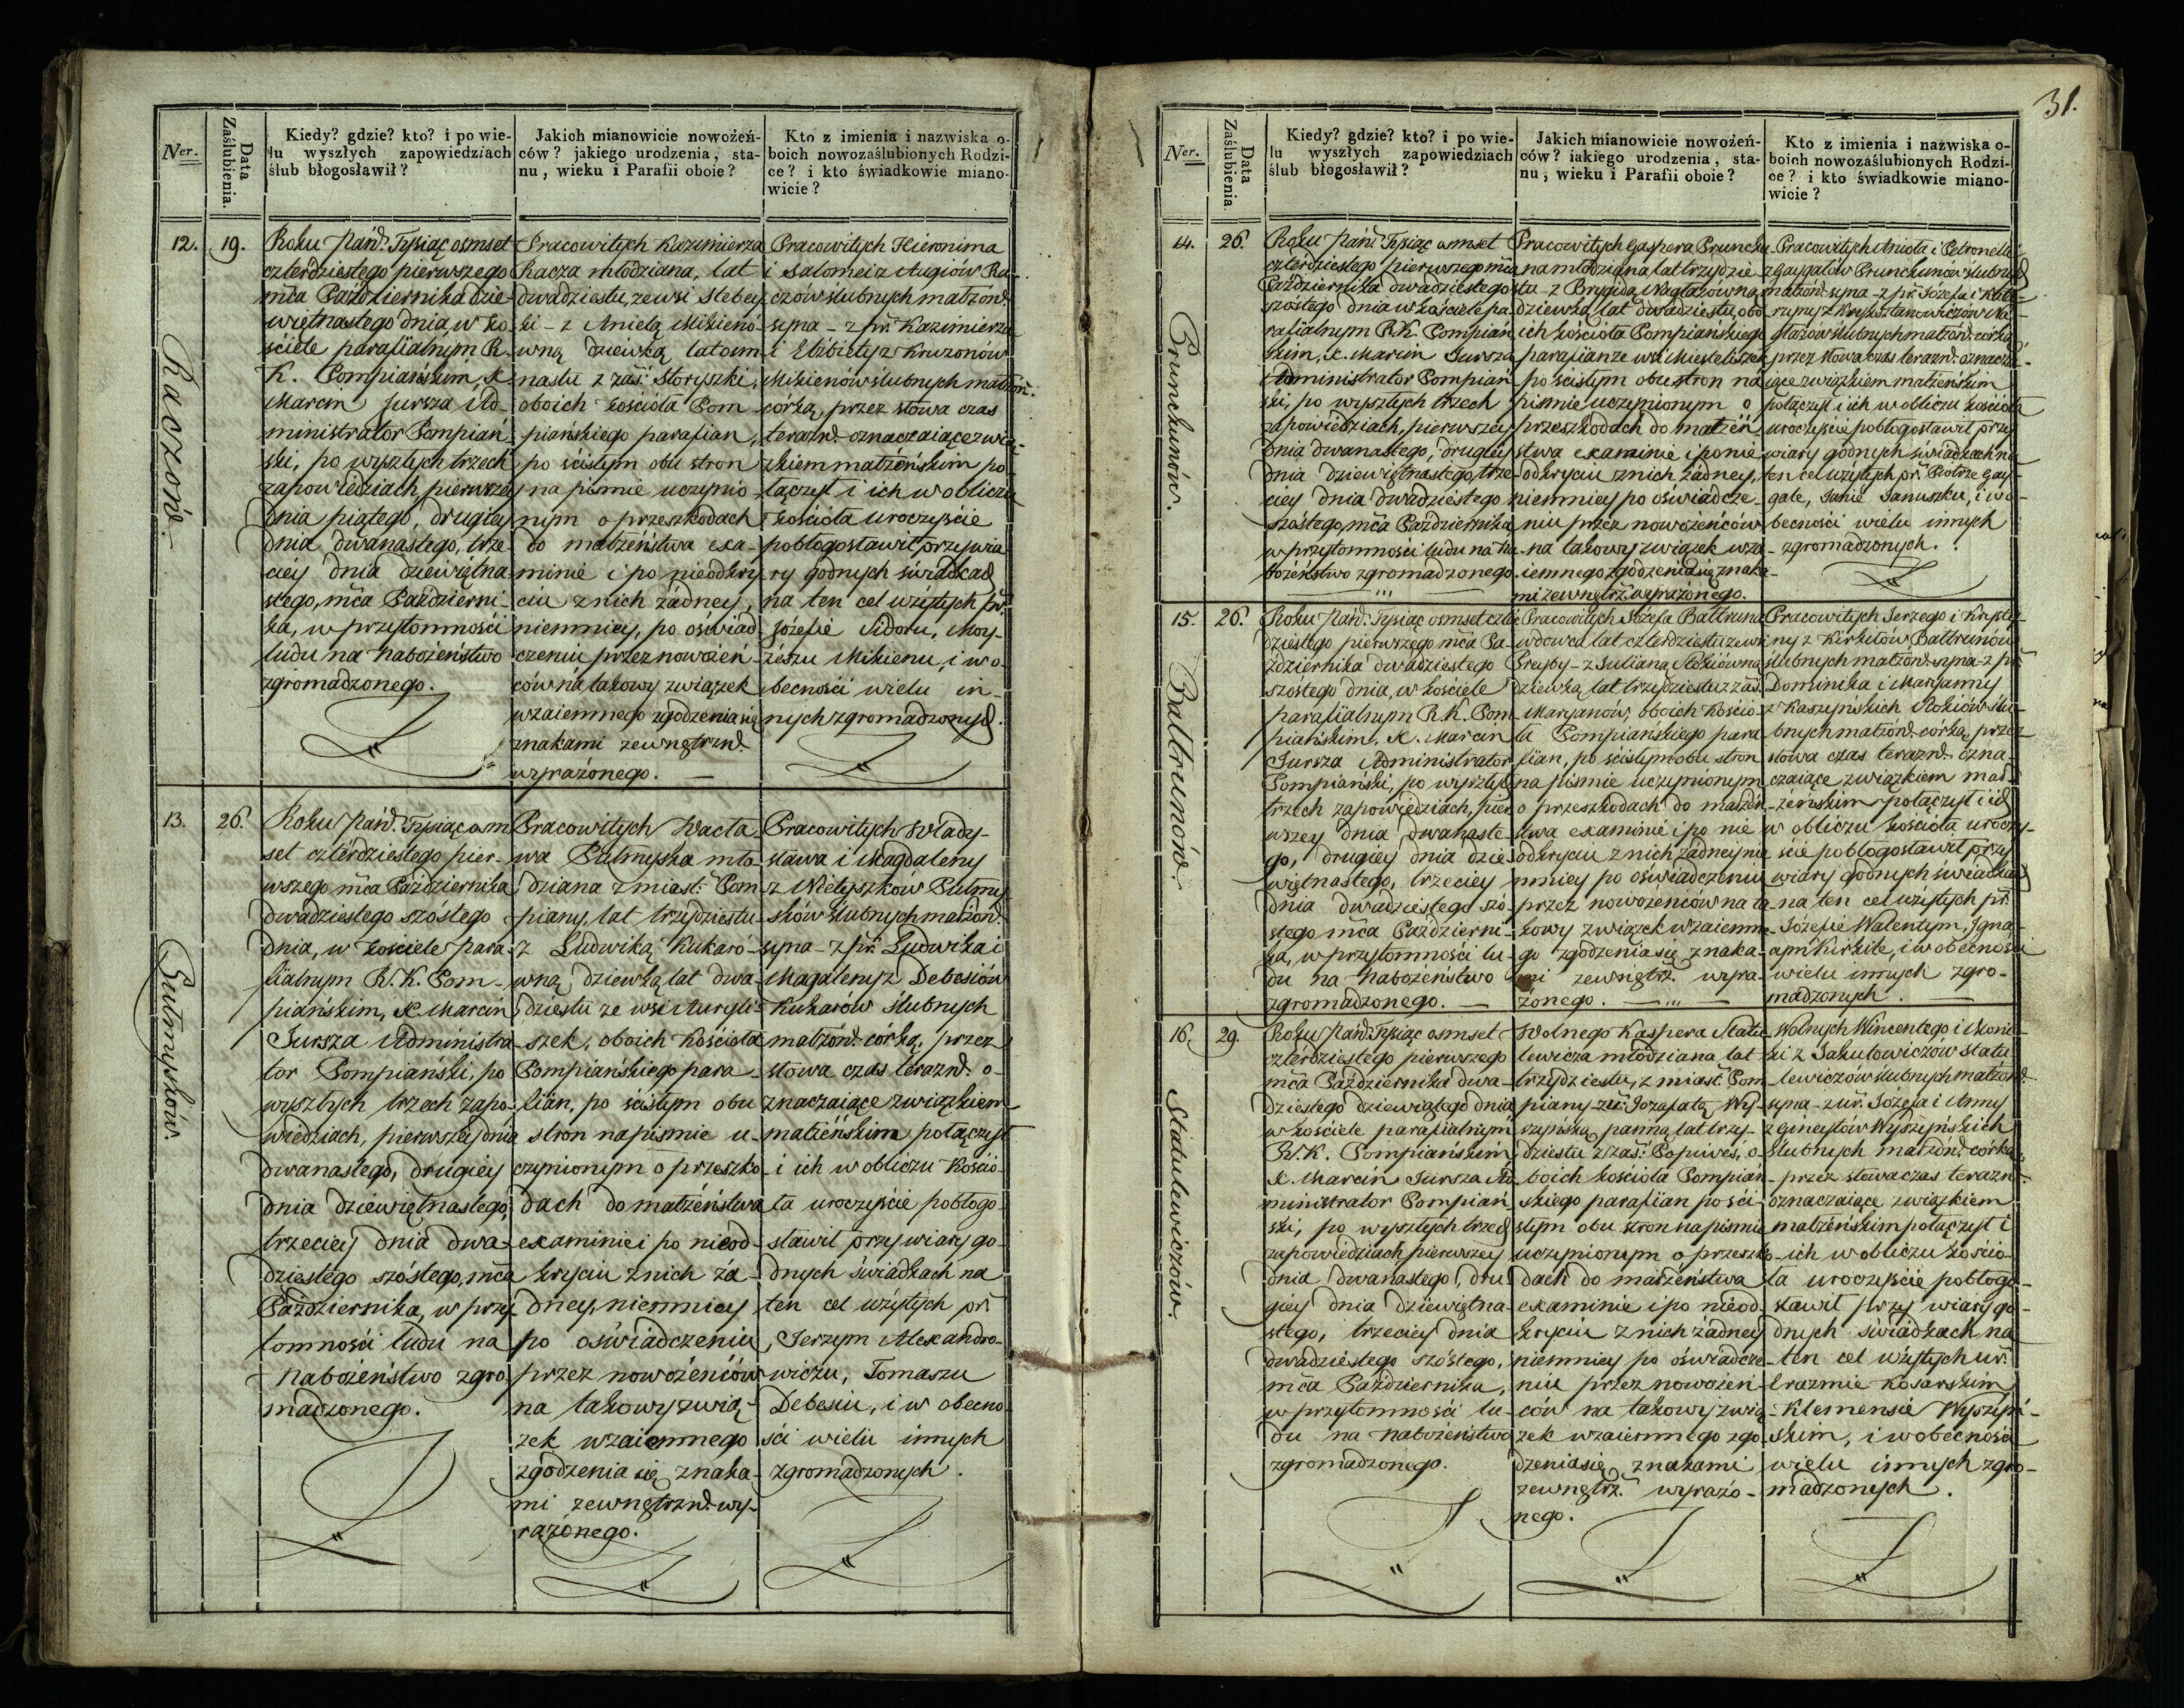 Ner.
Data
Zaślubienia.
Kiedy? gdzie? kto? i po wie-
lu wyszłych zapowiedziach
ślub błogosławił?
Jakich mianowicie nowożeń-
ców? jakiego urodzenia, sta-
nu, wieku i Parafii oboie?
Kto z imienia i nazwiska o-
boich nowozaślubionych Rodzi-
ce? i kto świadkowie miano-
wicie?
12.
19.
Raczow.
Roku Pańd. Tysiąc osmset
czterdziestego pierwszego
mca Października dzie-
więtnastego dnia, w ko-
ściele parafijalnym R.
K. Pompiańskim, X.
Marcin Jursza Ad-
ministrator Pompiań
ski, po wyszłych trzech
zapowiedziach, pierwszey
dnia piątego, drugiey
dnia dwanastego, trze-
ciey dnia dziewiętna
stego, mca Październi-
ka, w przytomności
ludu na nabożeństwo
zgromadzonego.
Pracowitych Kazimierza
Racza młodziana, lat
dwadziestu, ze wsi Stebey
ki - z Anielą Mikienó
wną dziewką lat osm
nastu z zaś: Storyszki,
oboich kościoła Pom-
piańskiego parafian,
po ścisłym obu stron
na pismie uczynio-
nym o przeszkodach
do małżeństwa exa-
minie i po nieodkry
ciu z nich żadney,
niemniey, po oświad-
czeniu przez nowożeń-
ców na takowy związek
wzaiemnego zgodzenia się
znakami zewnętrznd.
wyrażonego.
Pracowitych Hieronima
i Salomei z Augiów Ra-
czów ślubnych małżond.
syna - z pr. Kazimierza
i Elżbiety z Kruzonów
Mikienów ślubnych małżon.
córką, przez słowa czas
teraznd. oznaczaiące zwią-
zkiem małżeńskim po-
łączył i ich w obliczu
kościoła uroczyście
pobłogosławił przy wia
ry godnych świadkach
na ten cel użytych pr.
Józefie Sidoru, Moy-
żeszu Mikienu, i w o-
becności wielu in-
nych zgromadzonych.
13.
26.
Putmysków.
Roku Pańd. Tysiąc osm
set czterdziestego pier-
wszego mca Października
dwadziestego szóstego
dnia, w kościele para-
fialnym R. K. Pom-
piańskim, X Marcin
Jursza Administra-
tor Pompiański, po
wyszłych trzech zapo-
wiedziach, pierwszey dnia
dwanastego, drugiey
dnia dziewiętnastego,
trzeciey dnia dwa-
dziestego szóstego, mca
Października, w przy-
tomności ludu na
nabożeństwo zgro-
madzonego.
Pracowitych Wacła-
wa Putmyska mło
dziana z miast: Pom
piany, lat trzydziestu
z Ludwiką Kukaró-
wną dziewką lat dwa-
dziestu ze wsi Auryli-
szek, oboich Kościoła
Pompiańskiego para-
fiian, po ścisłym obu
stron na pismie u-
czynionym o przeszko
dach do małżeństwa
examinie i po nieod-
kryciu z nich ża-
dney, niemniey
po oświadczeniu
przez nowożeńców
na takowy zwią-
zek wzaiemnego
zgodzenia się znaka-
mi zewnętrznd. wy-
rażonego.
Pracowitych Włady-
sława i Magdaleny
z Wietyszków Putmy
sków ślubnych małżond.
syna - z pr. Ludwika i
Magaleny z Debesiów
Kukarów ślubnych
małżond. córką, przez
słowa czas teraznd. o-
znaczaiące związkiem
małżeńskim połączył
i ich w obliczu Kościo
ła uroczyście pobłogo
sławił przy wiary go-
dnych świadkach na
ten cel użytych pr.
Jerzym Alexandro-
wiczu, Tomaszu
Debesiu, i w obecno
ści wielu innych
zgromadzonych.
31.
Ner.
Data
Zaślubienia.
Kiedy? gdzie? kto? i po wie-
lu wyszłych zapowiedziach
ślub błogosławił?
Jakich mianowicie nowożeń-
ców? iakiego urodzenia, sta-
nu, wieku i Parafii oboie?
Kto z imienia i nazwiska o-
boich nowozaślubionych Rodzi-
ce? i kto świadkowie miano-
wicie?
14.
26.
Prunckunów.
Roku Pańd. Tysiąc osmset
czterdziestego pierwszego mca
Października dwadziestego
szóstego dnia w kościele pa-
rafialnym R.K. Pompiań
skim, X. Marcin Jursza
Administrator Pompiań-
ski, po wyszłych trzech
zapowiedziach, pierwszey
dnia dwanastego, drugiey
dnia dziewiętnastego, trze-
ciey dnia dwadziestego
szóstego, mca Października
w przytomności ludu na na-
bożeństwo zgromadzonego.
Pracowitych Gaspera Pruncku
na młodziana lat trzydzie-
stu - z Brygidą Nagłazówną
dziewką lat dwadziestu, obo
ich kościoła Pompiańskiego
parafian ze wsi Miesteliszek
po ścisłym obu stron na
pismie uczynionym o
przeszkodach do małżeń
stwa examinie i po nie
odkryciu z nich żadney,
niemniey po oświadcze-
niu przez nowożeńców
na takowy związek wza-
iemnego zgodzenia się znaka-
mi zewnętrz. wyrażonego.
Pracowitych Anioła i Petronelli
z Gaygałów Prunckunów ślubnych
małżond. syna - z pr. Józefa i Kata-
rzyny z Krysztanowiczów Na-
głazów ślubnych małżond. córką
przez słowa czas teraznd. oznacza-
iące związkiem małżeńskim
połączył i ich w obliczu kościoła
uroczyście pobłogosławił przy
wiary godnych świadkach na
ten cel użytych pr. Piotrze Gay-
gale, Janie Januszku, i w o-
becności wielu innych
zgromadzonych.
15.
26.
Baltrunów.
Roku Pańd. Tysiąc osmset czter
dziestego pierwszego mca Pa-
ździernika dwadziestego
szóstego dnia, w kościele
parafialnym R.K. Pom
piańskim, X. Marcin
Jursza Administrator
Pompiański, po wyszłych
trzech zapowiedziach, pier
wszey dnia dwanaste-
go, drugiey dnia dzie-
więtnastego, trzeciey
dnia dwadziestego szó-
stego mca Październi-
ka, w przytomności lu-
du na nabożeństwo
zgromadzonego.
Pracowitych Józefa Baltruna
wdowca lat czterdziestu ze wsi
Preyby - z Julianą Stokówną
dziewką lat trzydziestu z zaś.
Maryanów, oboich Kościo-
ła Pompiańskiego para
fian, po ścisłym obu stron
na pismie uczynionym
o przeszkodach do małżeń
stwa examinie i po nie
odkryciu z nich żadney nie
mniey po oświadczeniu
przez nowożeńców na ta-
kowy związek wzaiemne-
go zgodzenia się znaka-
mi zewnętrz. wyra-
żonego.
Pracowitych Jerzego i Krysty
ny z Kirkutów Baltrunów
ślubnych małżond. syna - z pr.
Dominika i Maryanny
z Kaszynskich Stokiów ślu-
bnych małżond. córką, przez
słowa czas teraznd. ozna-
czaiące związkiem mał-
żeńskim połączył i ich
w obliczu kościoła uroczy-
ście pobłogosławił przy
wiary godnych świadkach
na ten cel użytych pr.
Józefie Walentym, Igna-
cym Kirkile, i w obecności
wielu innych zgro-
madzonych.
16.
29.
Statulewiczów.
Roku Pańd. Tysiąc osmset
czterdziestego pierwszego
mca Października dwa-
dziestego dziewiątego dnia
w kościele parafialnym
R.K. Pompiańskim
X. Marcin Jursza Ad-
ministrator Pompiań
ski, po wyszłych trzech
zapowiedziach pierwszey
dnia dwanastego, dru
giey dnia dziewiętna-
stego, trzeciey dnia
dwadziestego szóstego,
mca Października,
w przytomności lu-
du na nabożeństwo
zgromadzonego.
Wolnego Kaspera Statu
lewicza młodziana lat
trzydziestu, z miast. Pom
piany - z ur. Jozafatą Wy-
szyńską panną lat trzy-
dziestu z zaś: Popiwés, o-
boich kościoła Pompiań
skiego parafiian po ści-
słym obu stron na pismie
uczynionym o przeszko
dach do małżeństwa
examinie i po nieod-
kryciu z nich żadney
niemniey po oświadcze-
niu przez nowożeń-
ców na takowy zwią-
zek wzaiemnego zgo
dzenia się znakami
zewnętrz. wyrażo-
nego.
Wolnych Wincentego i
ki z Jakutowiczów Statu
lewiczów ślubnych małżond.
syna - z ur. Józefa i Anny
z Wyszyńskich
ślubnych małżond. córką
przez słowa czas teraznd.
oznaczaiące związkiem
małżeńskim połączył i
ich w obliczu kościo-
ła uroczyście pobłogo-
sławił przy wiary go-
dnych świadkach na
ten cel użytych ur.
Erazmie Kosarskim
Klemensie Wyszyń-
skim, i w obecności
wielu innych zgro-
madzonych.